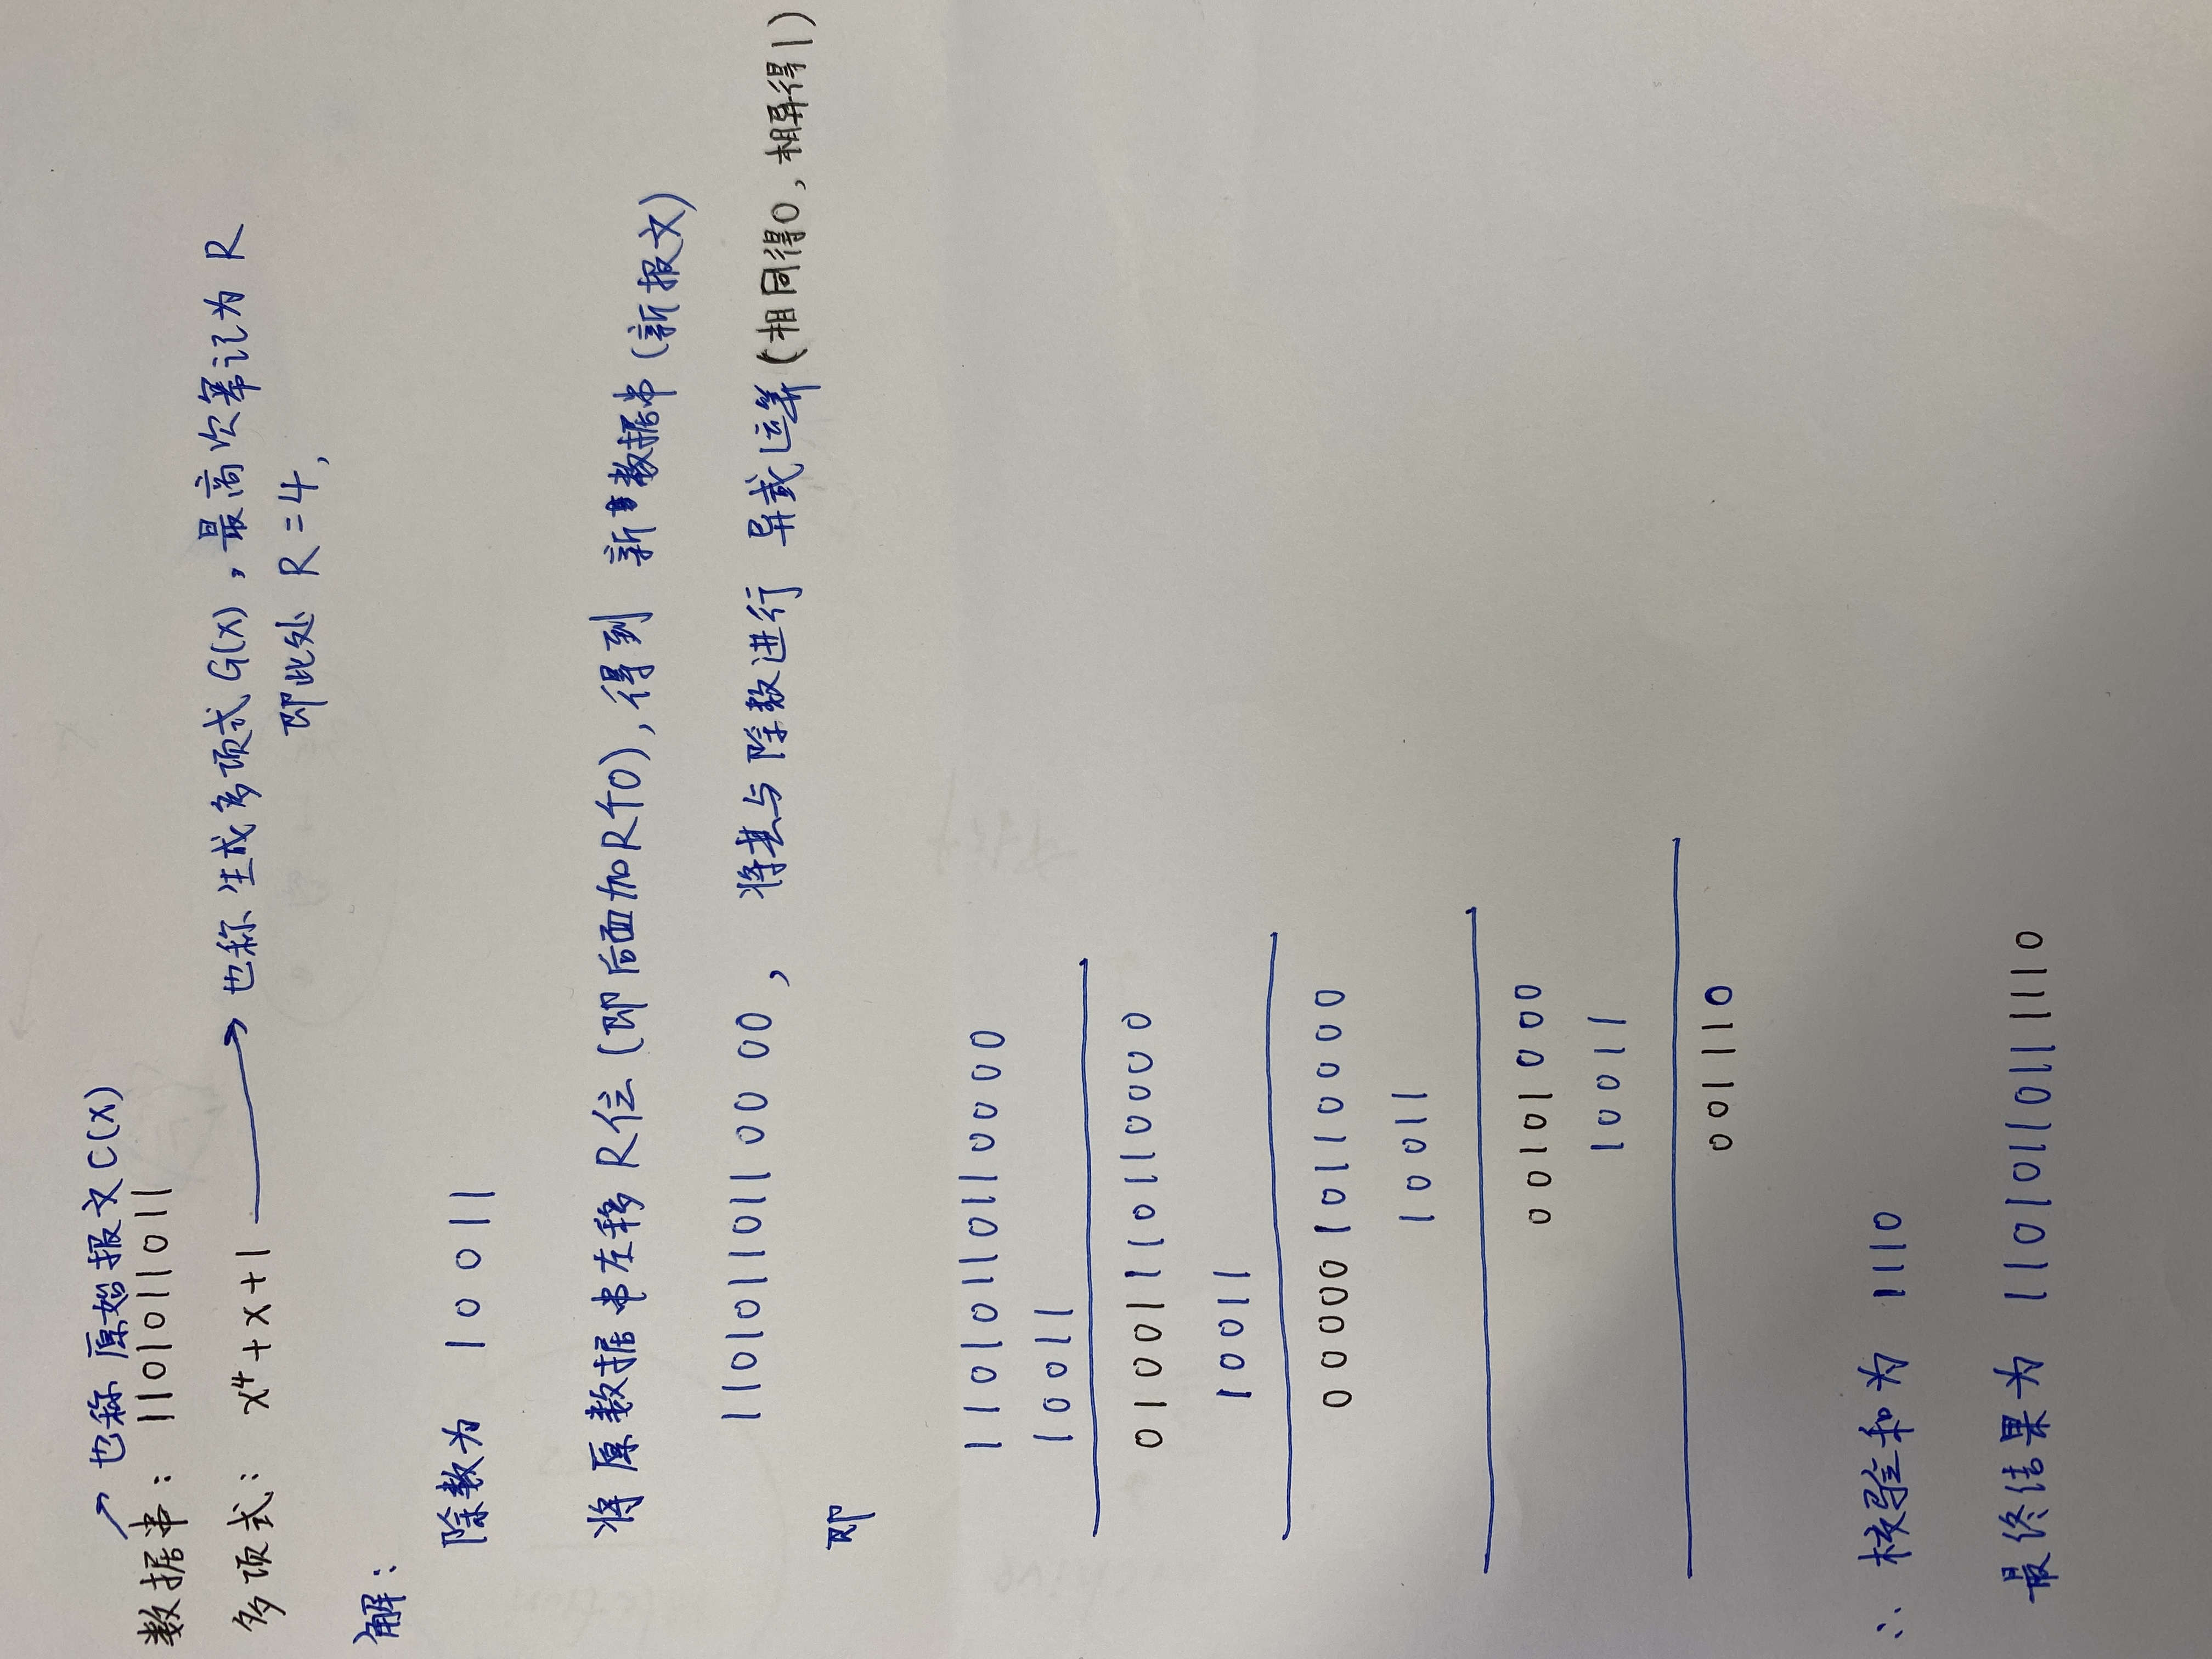 也称 原始报文 C(X)
数据串: 1101011011
多项式: x⁴+x+1 也称 生成多项式 G(X), 最高次幂记为 R
即此处 R=4,
解:
除数为 10011
将原数据串左移 R位 (即后面加R个0), 得到 新数据串 (新报文)
11010110110000, 将其与除数进行 异或运算 (相同得0, 相异得1)
即
11010110110000
10011
01001110110000
10011
0000010110000
10011
00101000
10011
001110
∴ 校验和为 1110
最终结果为 11010110111110